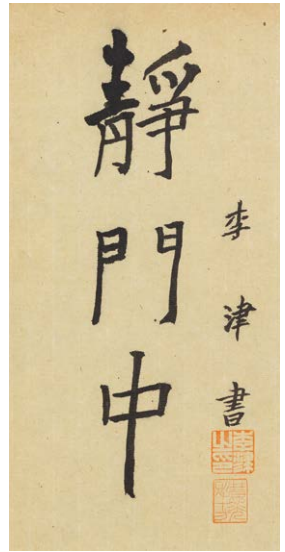 靜門中
李津書